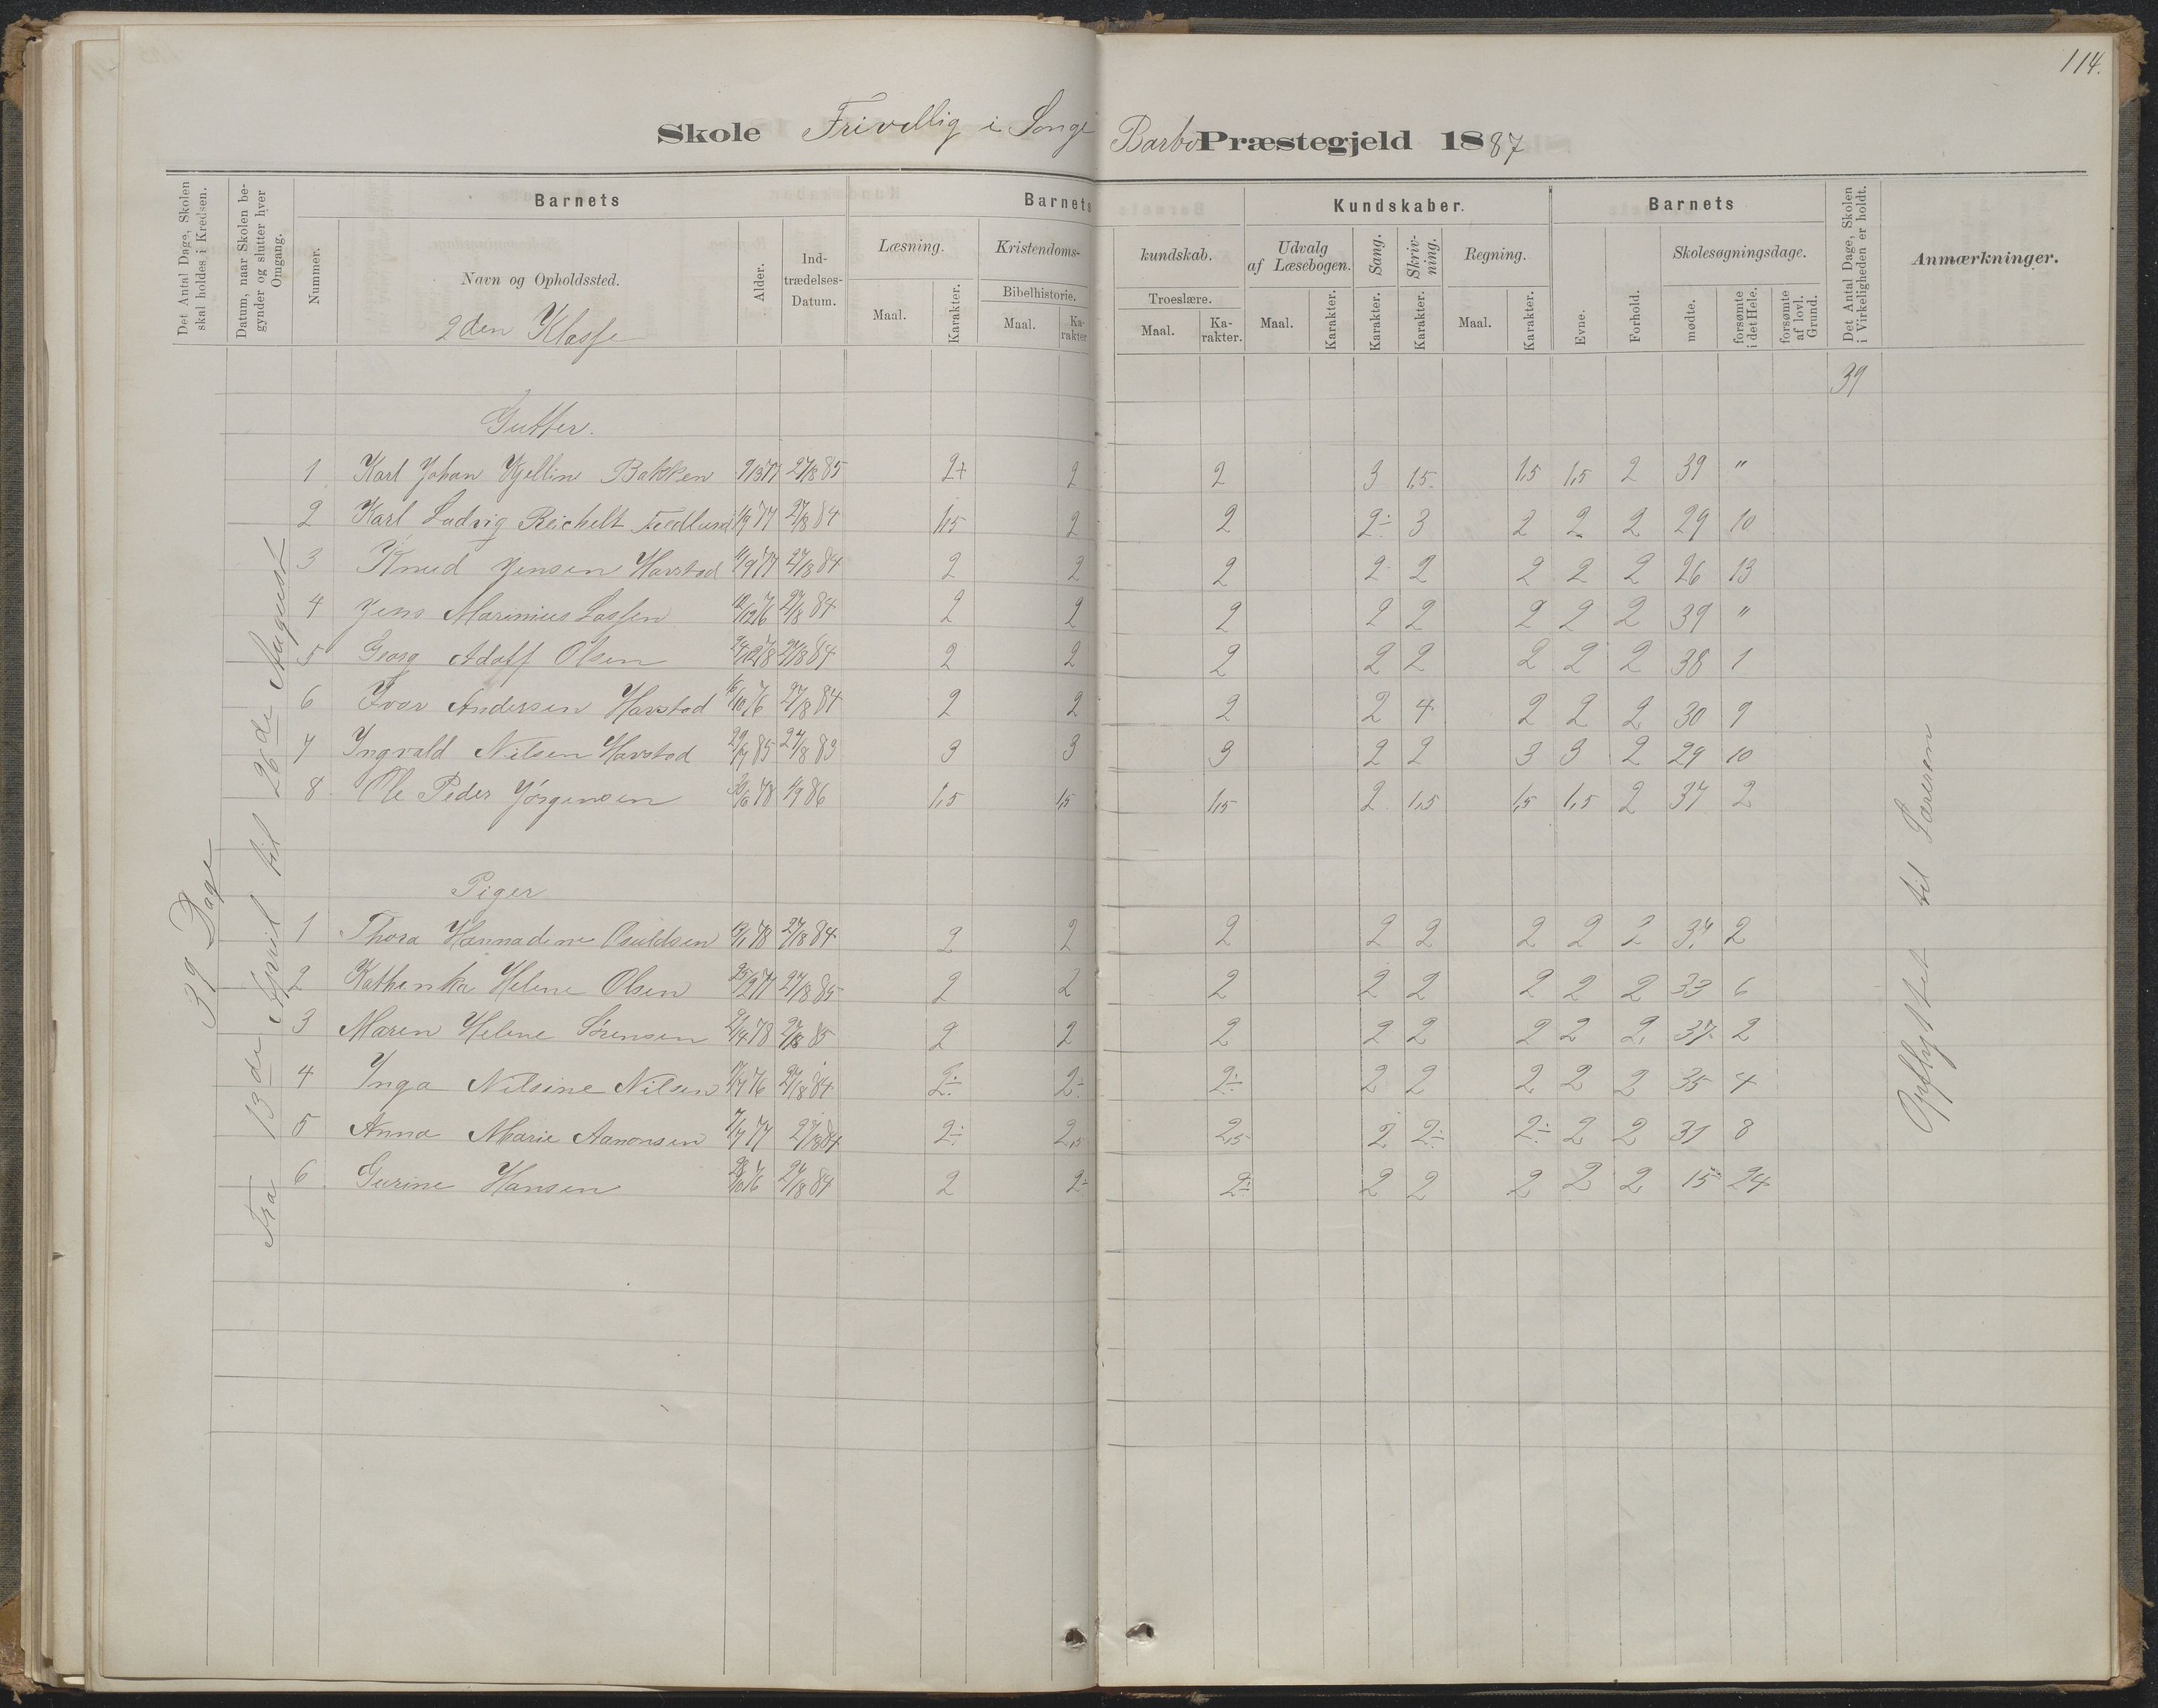 114.
Skole Frivillig i Songe Barbo Præstegjeld 1887
Det Antal Dage, Skolen skal holdes i Kredsen.
Datum, naar Skolen begynder og slutter hver Omgang.
Barnets
Nummer.
Navn og Opholdssted.
Alder.
Indtrædelses-Datum.
Barnets Kundskaber.
Læsning.
Maal.
Karakter.
Kristendomskundskab.
Bibelhistorie.
Maal.
Karakter
Troeslære.
Maal.
Karakter.
Udvalg af Læsebogen.
Maal.
Karakter.
Sang.
Karakter.
Skrivning.
Karakter.
Regning.
Maal.
Karakter.
Barnets
Evne.
Forhold.
Skolesøgningsdage.
mødte.
forsømte i det Hele.
forsømte af lovl. Grund.
Det Antal Dage, Skolen i Virkeligheden er holdt.
Anmærkninger.
2den Klasse
39
39 Dage
Fra 13de April til 26de August
Gutter.
1 Karl Johan Kjellin Bakken 27/8 85 2+ 2 2 3 1,5 1,5 1,5 2 39 "
2 Karl Ludvig Reichelt 1/9 77 27/8 84 1,5 2 2 2÷ 3 2 2 2 29 10
3 Knud Jensen Havstad 1/9 77 27/8 84 2 2 2 2 2 2 2 2 26 13
4 Jens Marinius Lassen 12/12 76 27/8 84 2 2 2 2 2 2 2 2 39 "
5 Georg Adolf Olsen 27/8 84 2 2 2 2 2 2 2 2 38 1
6 Ivar Andersen Havstad 27/8 84 2 2 2 2 4 2 2 2 30 9
7 Ingvald Nilsen Havstad 27/8 83 3 3 3 2 2 3 3 2 29 10
8 Ole Peder Jörgensen 1/9 86 1,5 1,5 1,5 2 1,5 1,5 1,5 2 37 2
Piger
1 Thora Hannadine Osuldsen 27/8 84 2 2 2 2 2 2 2 2 37 2
2 Kathinka Helene Olsen 27/8 85 2 2 2 2 2 2 2 2 33 6
3 Maren Helene Sörensen 27/8 85 2 2 2 2 2 2 2 2 37 2
4 Inga Nilsine Nilsen 27/8 84 2÷ 2÷ 2÷ 2 2 2 2 2 35 4
5 Anna Marie Aanonsen 7/7 77 27/8 84 2÷ 2,5 2,5 2 2÷ 2÷ 2 2 31 8
6 Gurine Hansen 27/8 84 2 2÷ 2÷ 2 2 2 2 2 15 24
Opflyttet til